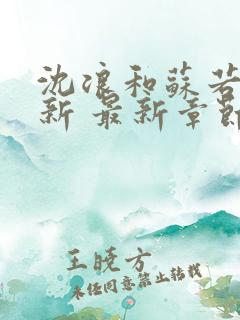 沈浪和蘇若
新 最新章節
王晓方
未经同意禁止转载